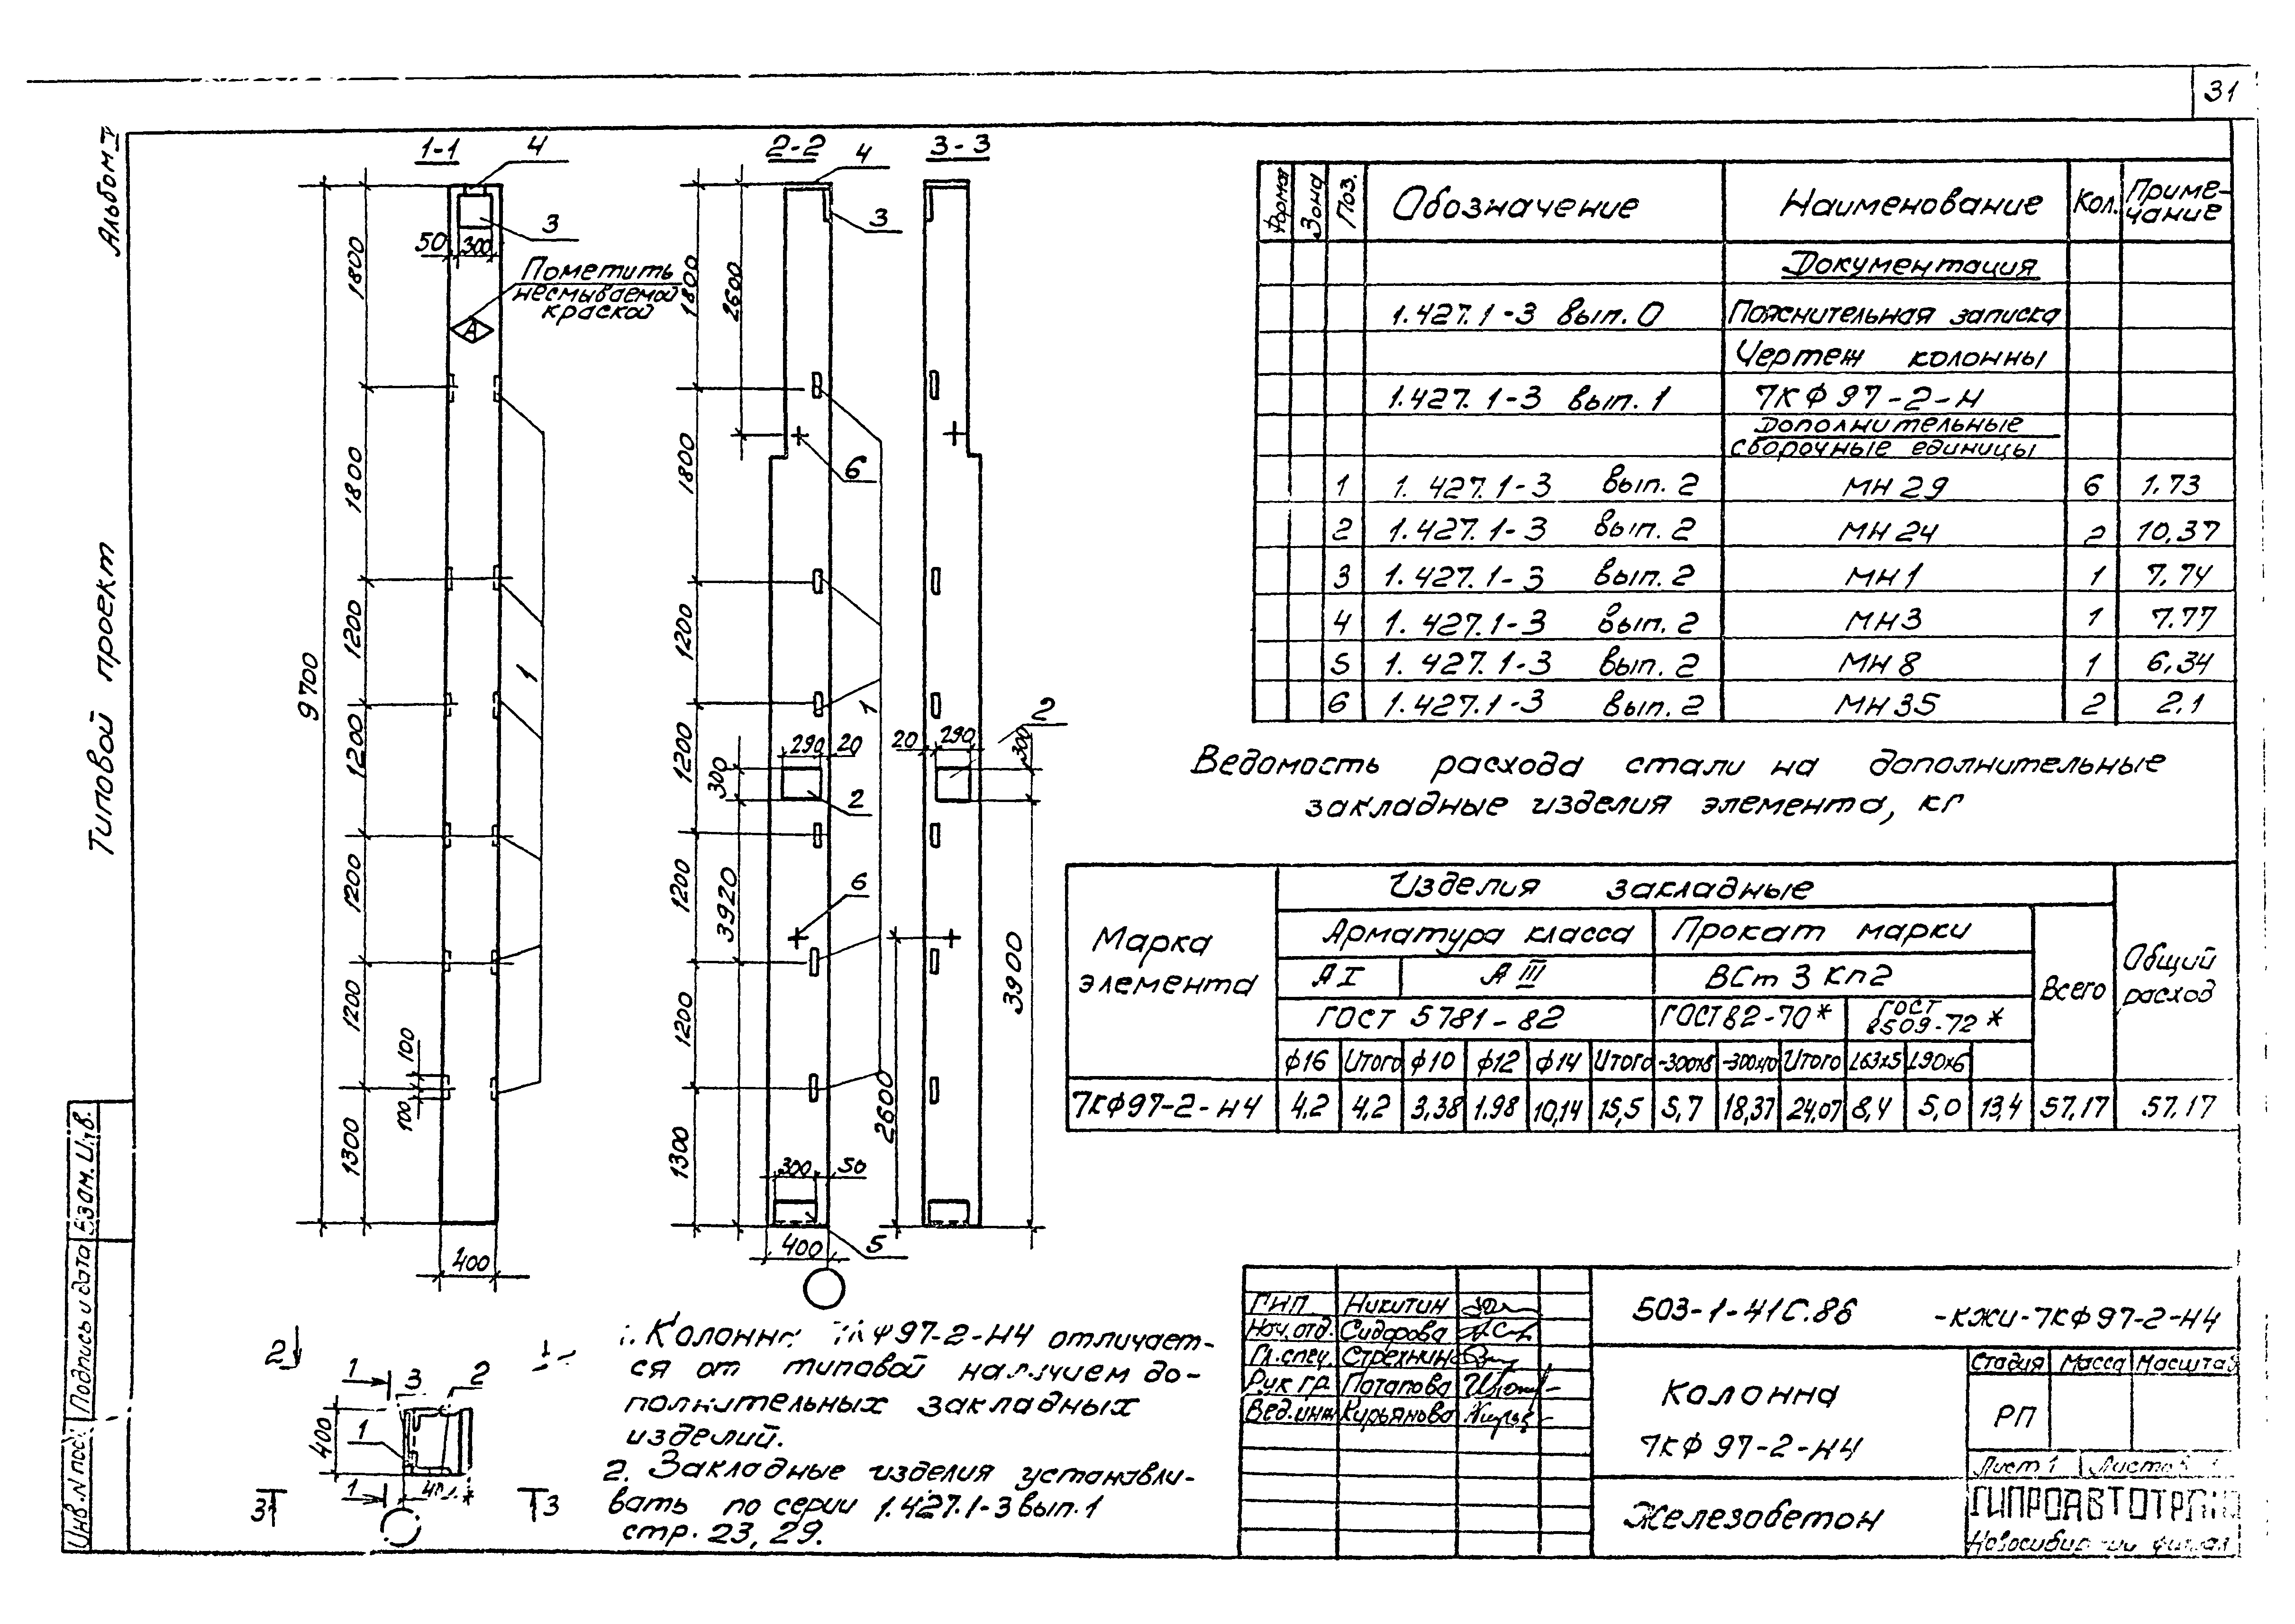 31
Альбом V
Типовой проект
Инв. N подл
Подпись и дата
Взам. Инв.
1-1
4
3
50
300
Пометить
несмываемой
краской
А
1800
1800
1200
1200
1200
1200
1300
9700
100
100
400
1
2-2
4
3
1800
2600
1800
6
1200
1200
1200
1200
1300
290
20
300
2
3920
6
1
300
50
400
5
3-3
2
20
290
300
3900
2600
2
1
3
2
400
1
1
3
3
1. Колонна 7КФ97-2-Н4 отличает-
ся от типовой наличием до-
полнительных закладных
изделий.
2. Закладные изделия устанавли-
вать по серии 1.427.1-3 вып.1
стр. 23, 29.
Формат Зона Поз. Обозначение Наименование Кол. Приме-
чание
Документация
1.427.1-3 вып. 0 Пояснительная записка
Чертеж колонны
1.427.1-3 вып. 1 7КФ97-2-Н
Дополнительные
сборочные единицы
1 1.427.1-3 вып. 2 МН29 6 1.73
2 1.427.1-3 вып. 2 МН24 2 10,37
3 1.427.1-3 вып. 2 МН1 1 7.74
4 1.427.1-3 вып. 2 МН3 1 7.77
5 1.427.1-3 вып. 2 МН8 1 6,34
6 1.427.1-3 вып. 2 МН35 2 2.1
Ведомость расхода стали на дополнительные
закладные изделия элемента, кг
Марка
элемента
Изделия закладные
Арматура класса Прокат марки
А I А III ВСт 3 кп2
Всего
Общий
расход
ГОСТ 5781-82 ГОСТ 82-70* ГОСТ
8509-72*
ф16 Итого ф10 ф12 ф14 Итого -300х8 -300х10 Итого L63х5 L90х6
7КФ97-2-Н4 4,2 4,2 3,38 1.98 10,14 15,5 5,7 18,37 24,07 8,4 5,0 13,4 57,17 57.17
ГИП Никитин
Нач.отд. Сидорова
Гл.спец. Стрехнин
Рук гр. Потапова
Вед.инж Кирьянова
503-1-41с.86 -КЖИ-7КФ97-2-Н4
Колонна
7КФ97-2-Н4
Стадия Масса Масштаб
РП
Лист 1 Листов
Железобетон
ГИПРОАВТОТРАНС
Новосибирский филиал